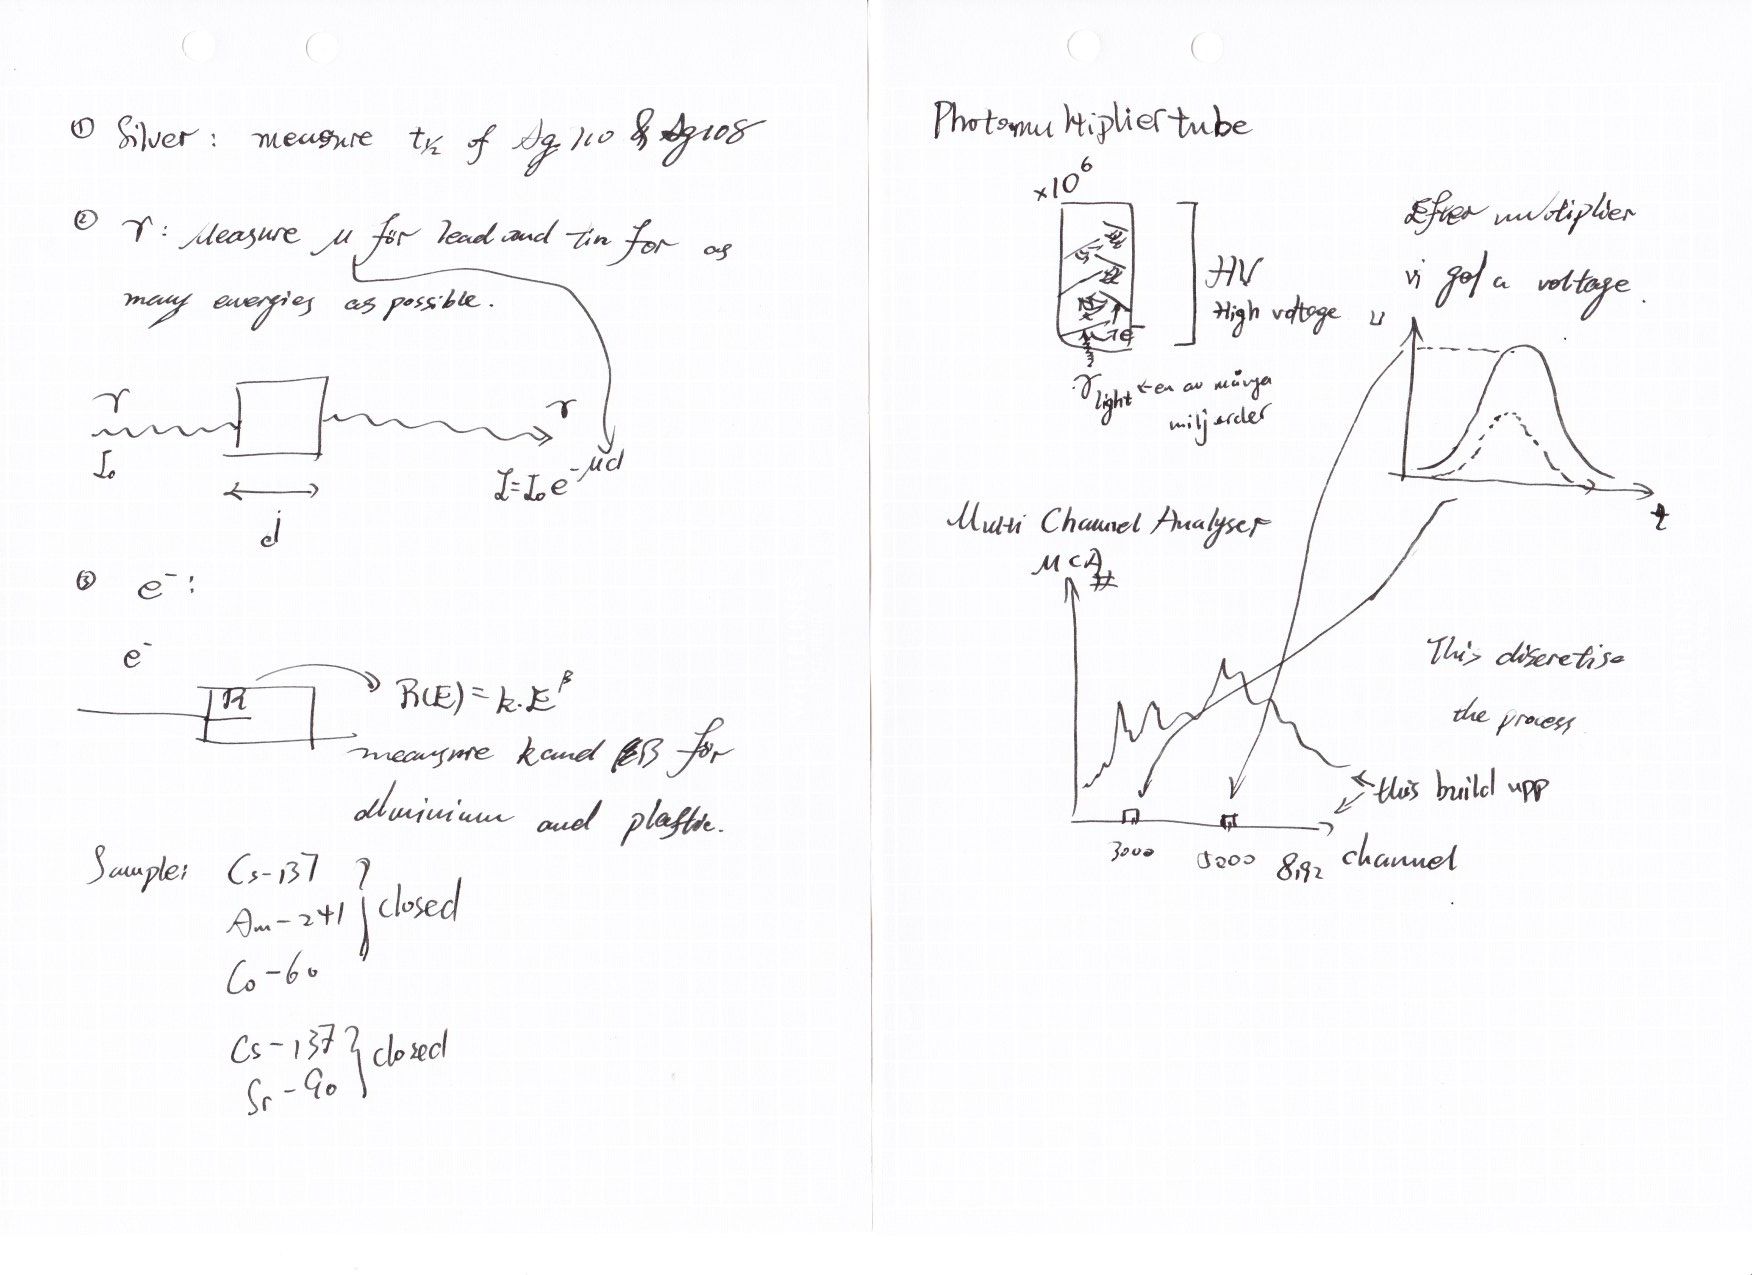 ① Silver: measure t½ of Ag 110 & Ag108
② γ: Measure μ för lead and tin for as
many energies as possible.
γ
γ
I₀
I=I₀e^-μd
d
③ e⁻:
e⁻
R
R(E)=k·E^β
measure k and β för
aluminium and plastic.
Sample: Cs-137
Am-241
closed
Co-60
Cs-137
closed
Sr-90
Photomultiplier tube
×10⁶
HV
High voltage
e⁻
γ light ← en av många
miljarder
Efter multiplier
vi got a voltage.
U
t
Multi Channel Analyser
MCA
#
This discretise
the process
← this build upp
3000
5000
8192
channel